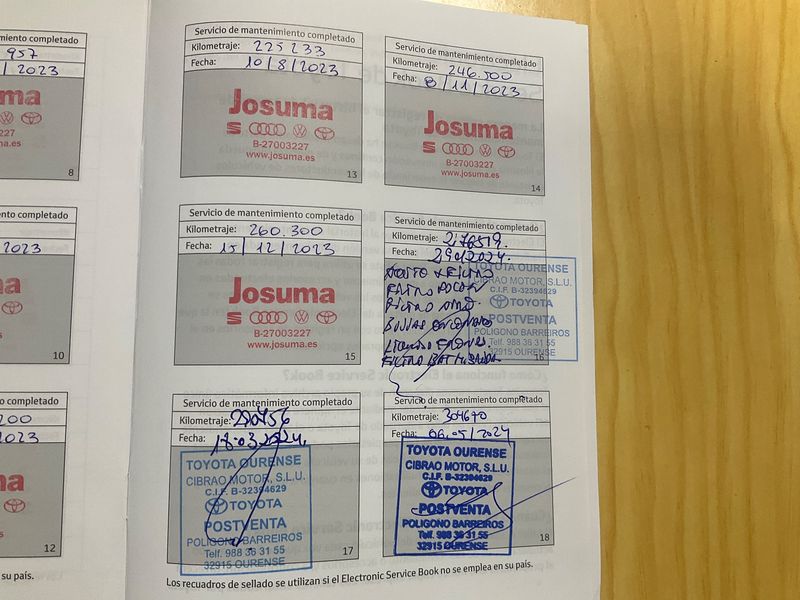 Servicio de mantenimiento completado
957
/ 2023
8
2023
10
200
2023
12
Servicio de mantenimiento completado
Kilometraje: 225233
Fecha: 10/8/2023
Josuma
B-27003227
www.josuma.es
13
Servicio de mantenimiento completado
Kilometraje: 246.500
Fecha: 8/11/2023
Josuma
B-27003227
www.josuma.es
14
Servicio de mantenimiento completado
Kilometraje: 260.300
Fecha: 15/12/2023
Josuma
B-27003227
www.josuma.es
15
Servicio de mantenimiento completado
Kilometraje: 276519.
Fecha:
TOYOTA OURENSE
CIBRAO MOTOR, S.L.U.
C.I.F. B-32394629
TOYOTA
POSTVENTA
POLIGONO BARREIROS
Telf. 988 36 31 55
32915 OURENSE
16
Servicio de mantenimiento completado
Kilometraje: 290456
Fecha: 18.03.2024.
TOYOTA OURENSE
CIBRAO MOTOR, S.L.U.
C.I.F. B-32394629
TOYOTA
POSTVENTA
POLIGONO BARREIROS
Telf. 988 36 31 55
32915 OURENSE
17
Servicio de mantenimiento completado
Kilometraje: 304670
Fecha: 06.05/2024
TOYOTA OURENSE
CIBRAO MOTOR, S.L.U.
C.I.F. B-32394629
TOYOTA
POSTVENTA
POLIGONO BARREIROS
Telf. 988 36 31 55
32915 OURENSE
18
su país.
Los recuadros de sellado se utilizan si el Electronic Service Book no se emplea en su país.